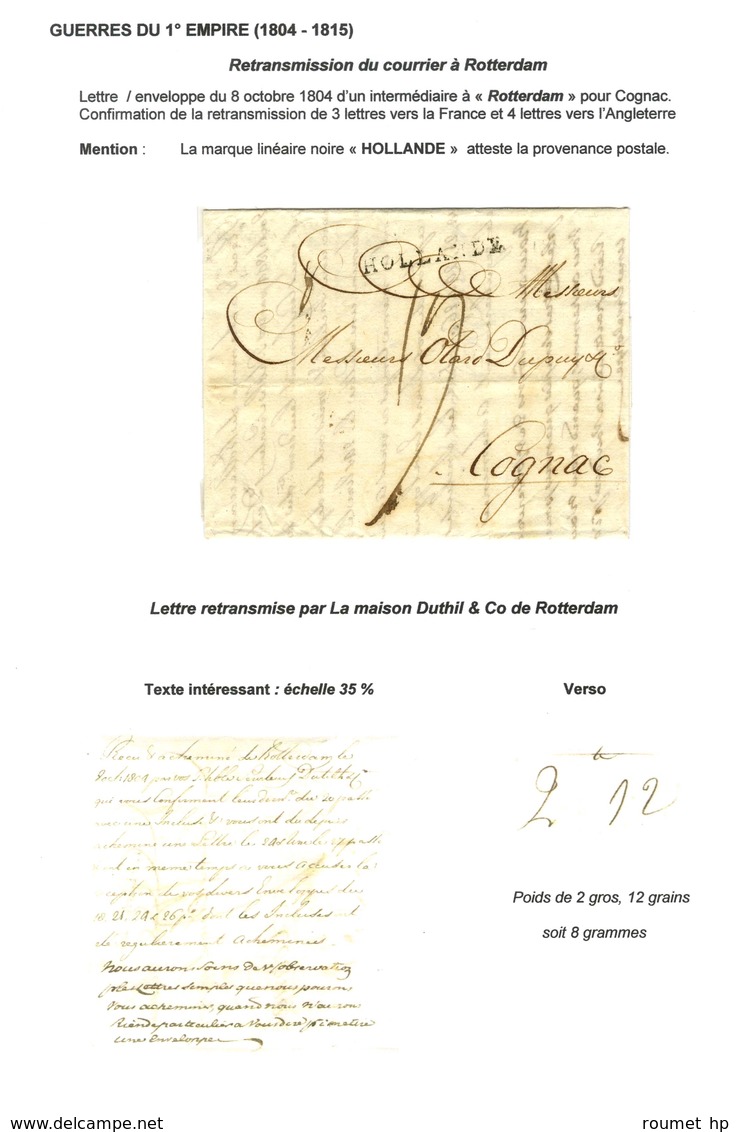 GUERRES DU 1° EMPIRE (1804 - 1815)
Retransmission du courrier à Rotterdam
Lettre / enveloppe du 8 octobre 1804 d'un intermédiaire à « Rotterdam » pour Cognac.
Confirmation de la retransmission de 3 lettres vers la France et 4 lettres vers l'Angleterre
Mention : La marque linéaire noire « HOLLANDE » atteste la provenance postale.
HOLLANDE
Messieurs
Messieurs Otard Dupuy & Co
Cognac
Lettre retransmise par La maison Duthil & Co de Rotterdam
Texte intéressant : échelle 35 %
Verso
Recu & acheminé de Rotterdam le
qui vous Confirment leur du 20
une Incluse & vous ont du depuis
acheminé une Lettre le
en meme temps vous accuser la
reception de vos divers Enveloppes du
18. 21. 24 & 26 dont les Incluses ont
été regulierement acheminées.
Nous aurons Soins de v/observation
p les Lettres Simples que nous pourons
vous acheminer, quand nous n'auron
Rien de particulier a Vous dire p y metre
une enveloppe
2 12
Poids de 2 gros, 12 grains
soit 8 grammes
roumet hp